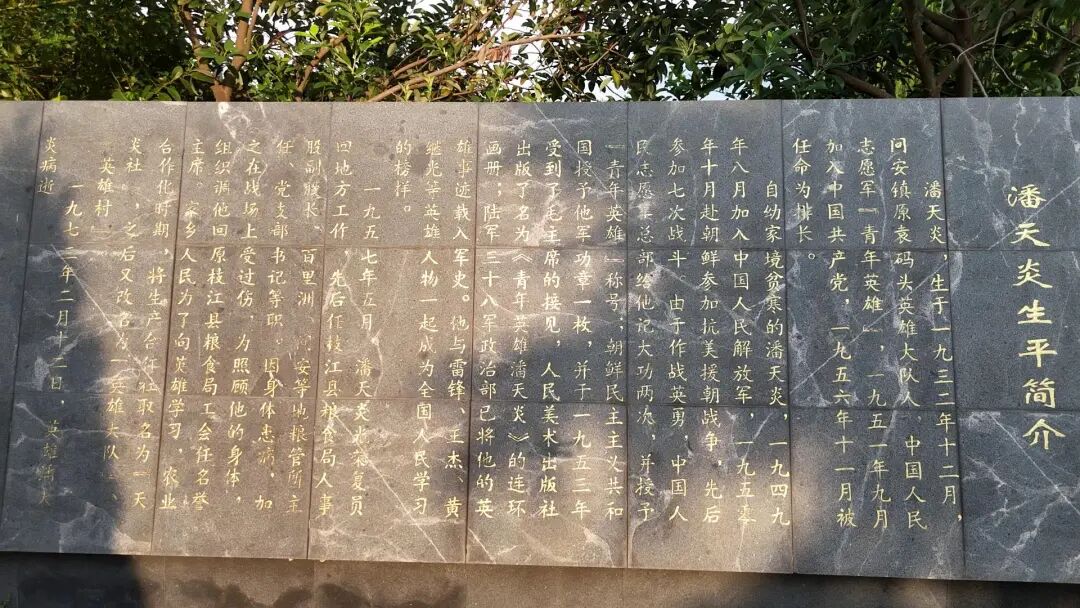 潘天炎生平简介
潘天炎，生于一九三二年十二月，
问安镇原袁码头英雄大队人　中国人民
志愿军『青年英雄』，一九五一年九月
加入中国共产党，一九五六年十一月被
任命为排长。
自幼家境贫寒的潘天炎，一九四九
年八月加入中国人民解放军，一九五零
年十月赴朝鲜参加抗美援朝战争，先后
参加七次战斗。由于作战英勇，中国人
民志愿军总部给他记大功两次，并授予
『青年英雄』称号，朝鲜民主主义共和
国授予他军功章一枚，并于一九五三年
受到了毛主席的接见，人民美术出版社
出版了名为《青年英雄潘天炎》的连环
画册；陆军三十八军政治部已将他的英
雄事迹载入军史。他与雷锋、王杰、黄
继光等英雄人物一起成为全国人民学习
的榜样。
一九五七年五月　潘天炎光荣复员
回地方工作，先后任枝江县粮食局人事
股副股长、百里洲、问安等地粮管所主
任、党支部书记等职。因身体患病，加
之在战场上受过伤，为照顾他的身体，
组织调他回原枝江县粮食局工会任名誉
主席　家乡人民为了向英雄学习，农业
合作化时期，将生产合作社取名为『天
炎社』，之后又改名为『英雄大队』、
『英雄村』
一九七三年二月十二日，英雄潘天
炎病逝